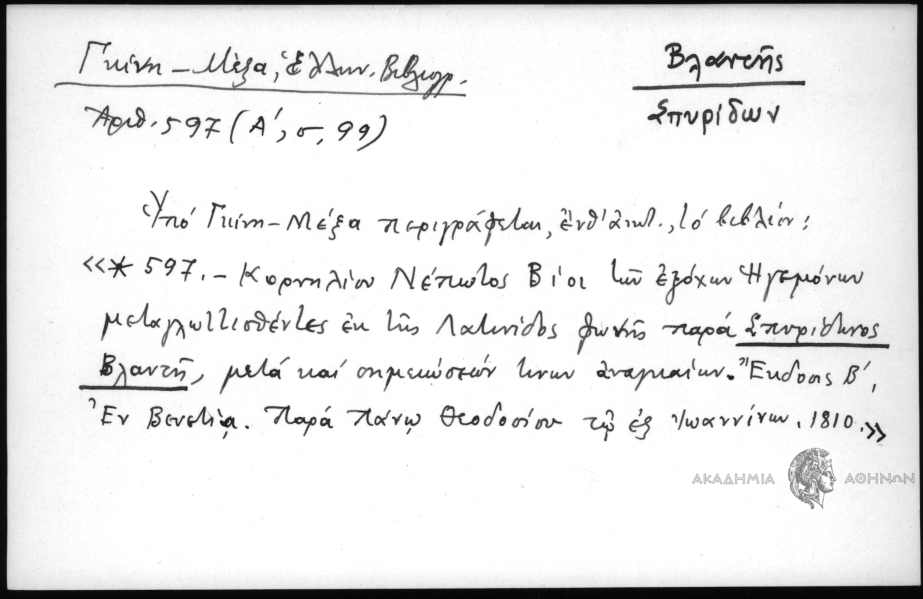 Γκίνη – Μέξα, Ἑλλην. Βιβλιογρ.
Ἀριθ. 597 (Α΄, σ. 99)
Βλαντῆς
Σπυρίδων
Ὑπό Γκίνη – Μέξα περιγράφεται, ἐνθ' ἀνωτ., τό βιβλίον:
«* 597. – Κορνηλίου Νέπωτος Βίοι τῶν ἐξόχων Ἡγεμόνων
μεταγλωττισθέντες ἐκ τῆς Λατινίδος φωνῆς παρά Σπυρίδωνος
Βλαντῆ, μετά καί σημειώσεών τινων ἀναγκαίων. Ἔκδοσις Β΄,
Ἐν Βενετίᾳ. Παρά Πάνῳ Θεοδοσίου τῷ ἐξ Ἰωαννίνων. 1810.»
ΑΚΑΔΗΜΙΑ ΑΘΗΝΩΝ